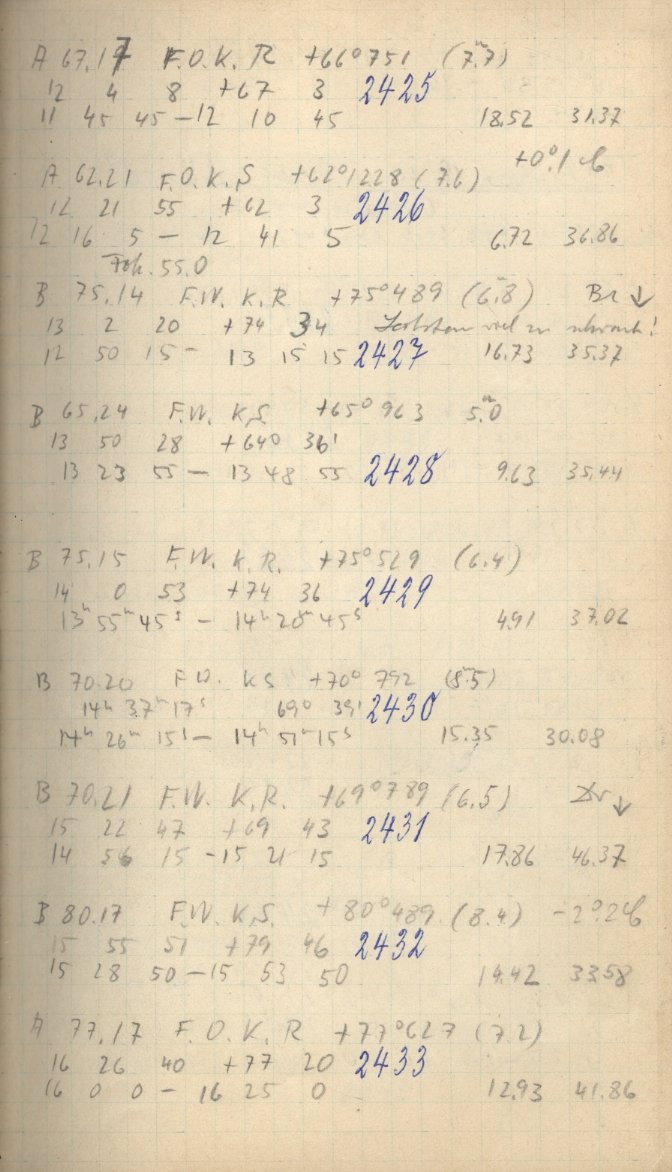 A 67,17 F.O. K. R +66°751 (7.ᵐ7)
12 4 8 +67 3 2425
11 45 45 – 12 10 45 18.52 31.37
+0°.1 C
A 62.21 F.O. K. S +62°1228 (7.6)
12 21 55 +62 3 2426
12 16 5 – 12 41 5 6.72 36.86
Fok. 55.0
B 75.14 F.W. K. R +75°489 (6.ᵐ8) Br ↓
13 2 20 +74 34 viel zu schwach!
12 50 15 – 13 15 15 2427 16.73 35.37
B 65,24 F.W. K.S. +65°963 5.ᵐ0
13 50 28 +64° 36'
13 23 55 – 13 48 55 2428 9.63 35.44
B 75.15 F.W. K. R. +75°529 (6.4)
14 0 53 +74 36 2429
13ʰ 55ᵐ 45ˢ – 14ʰ 20ᵐ 45ˢ 4.91 37.02
B 70.20 F.W. K S +70° 792 (8.ᵐ5)
14ʰ 37ᵐ 17ˢ 69° 39' 2430
14ʰ 26ᵐ 15ˢ – 14ʰ 51ᵐ 15ˢ 15.35 30.08
B 70.21 F.W. K.R. +69°789 (6.5) Br ↓
15 22 47 +69 43 2431
14 56 15 – 15 21 15 17.86 46.37
B 80.17 F.W. K.S. +80°489 (8.4) –2°.2 C
15 55 51 +79 46 2432
15 28 50 – 15 53 50 14.42 33.58
A 77,17 F.O. K. R +77°627 (7.2)
16 26 40 +77 20 2433
16 0 0 – 16 25 0 12.93 41.86